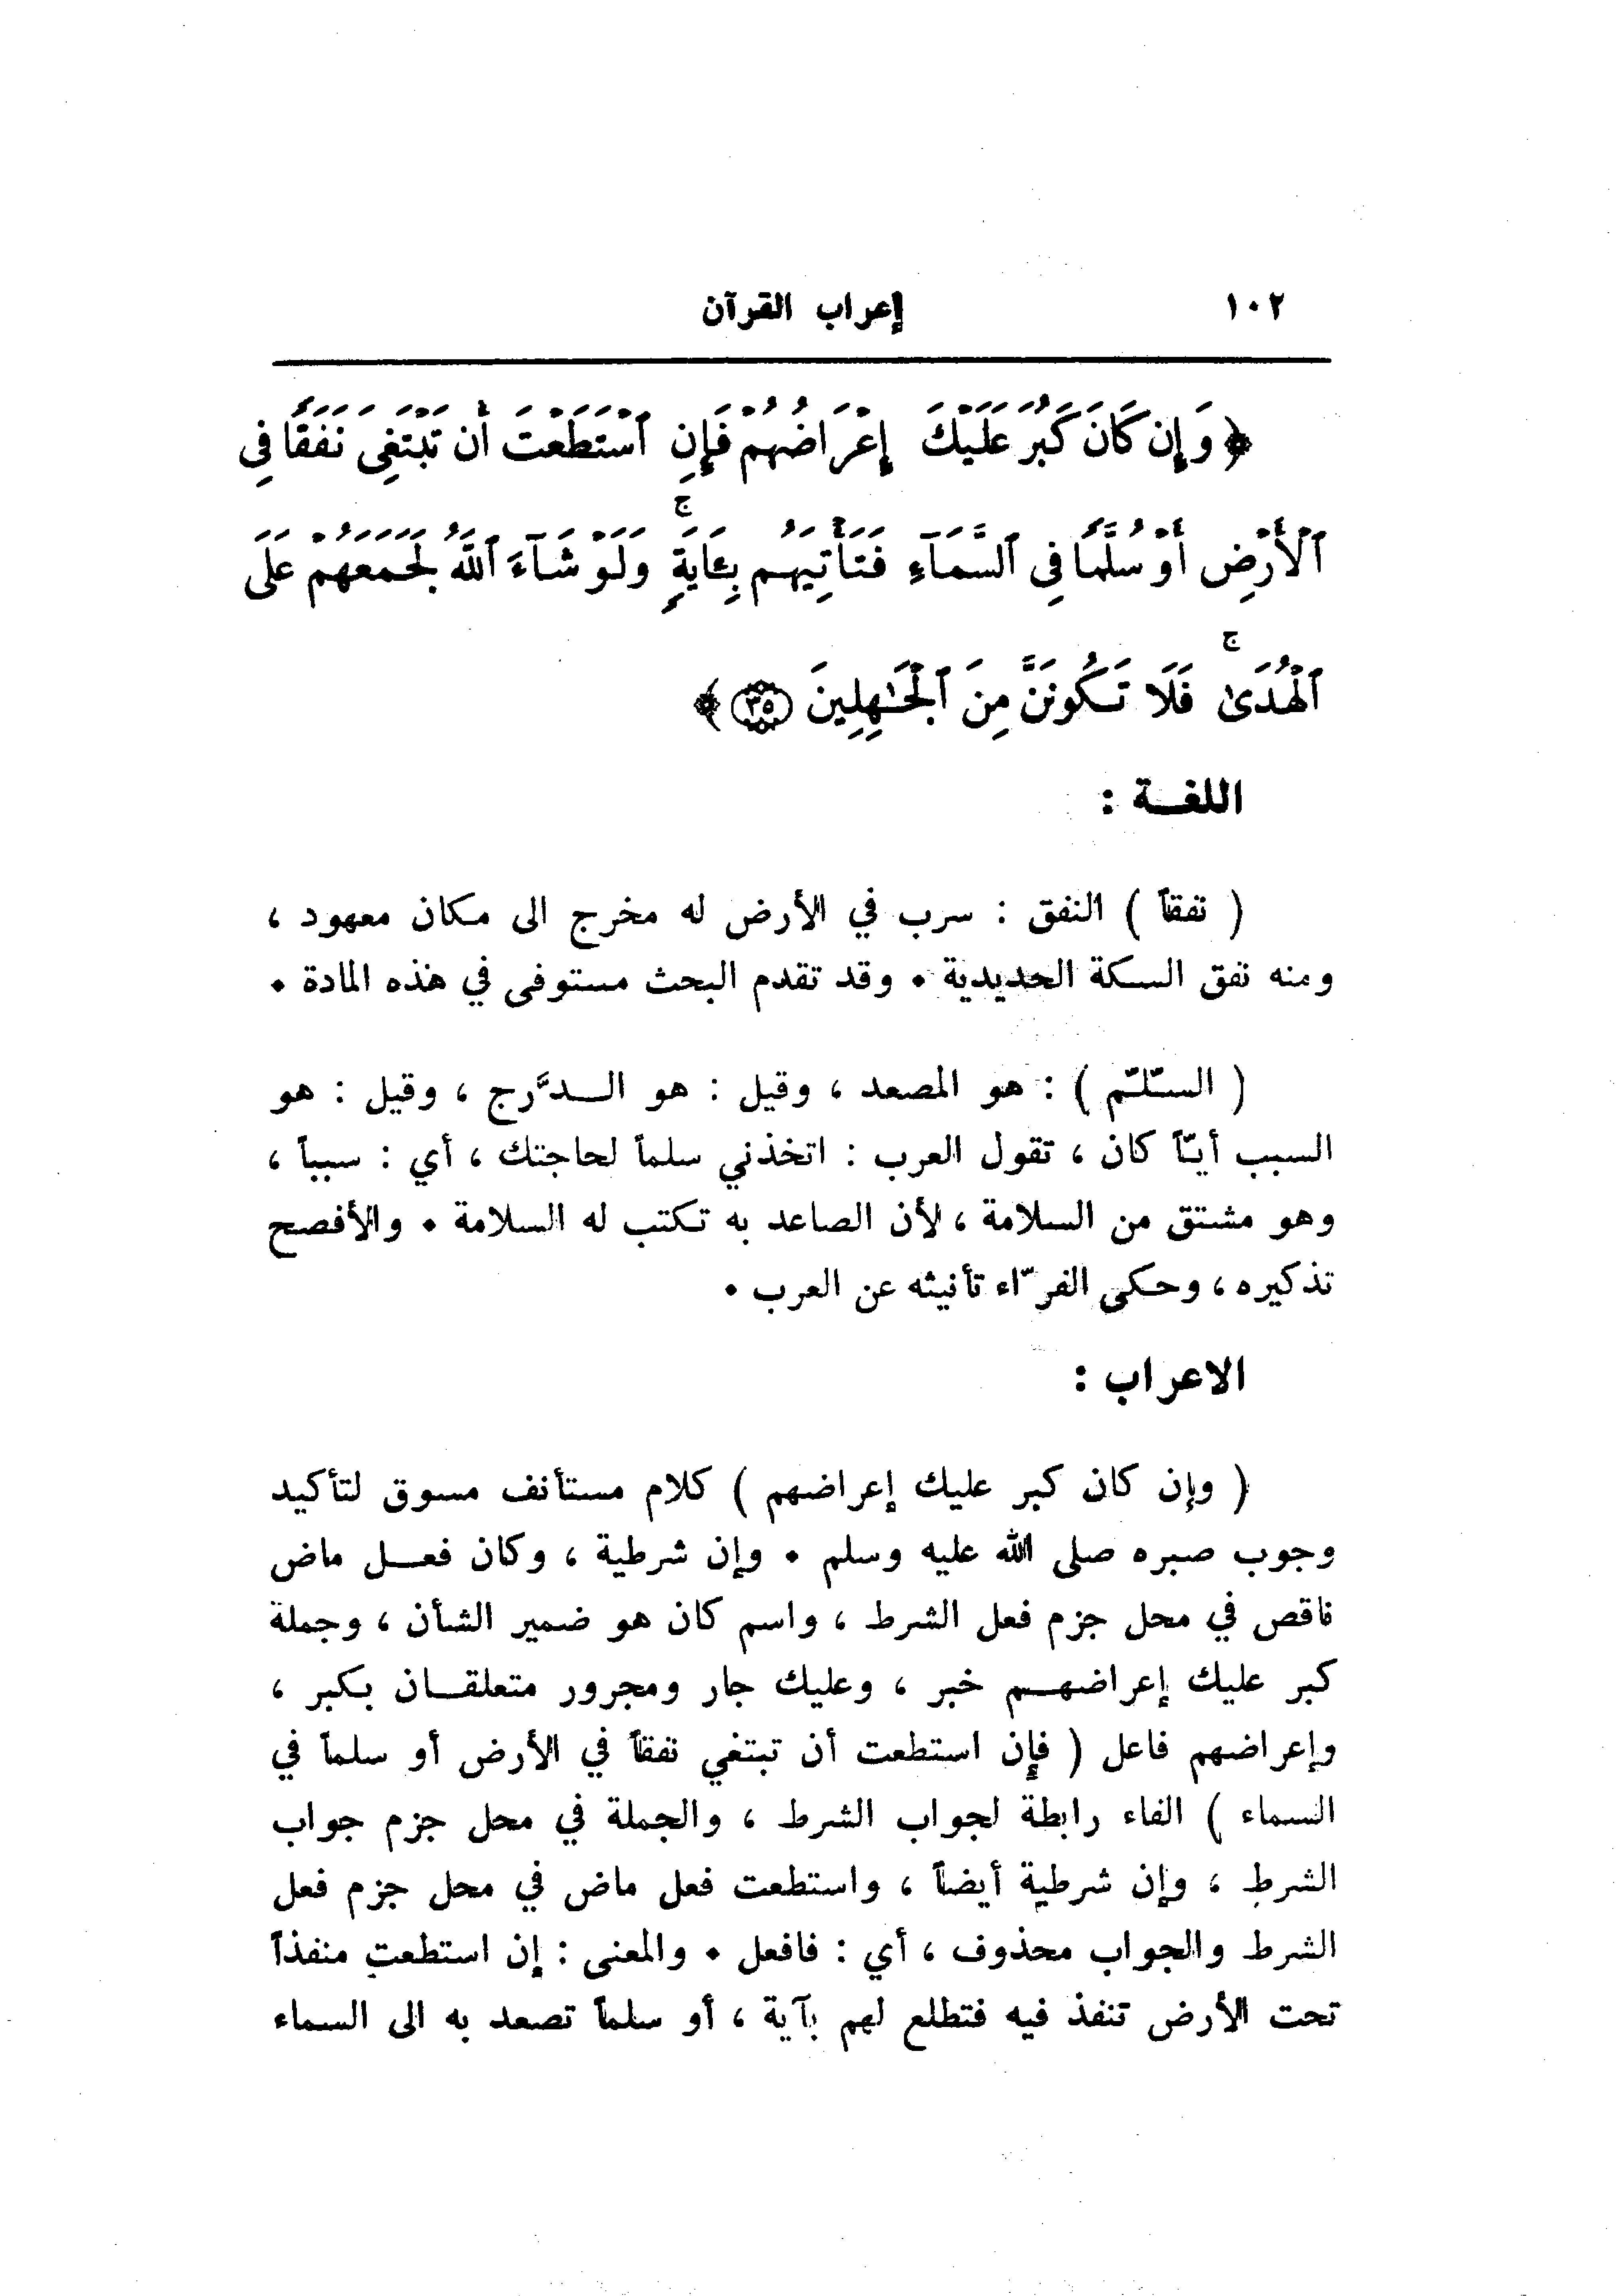 ١٠٢ إعراب القرآن
﴿ وَإِن كَانَ كَبُرَ عَلَيْكَ إِعْرَاضُهُمْ فَإِنِ ٱسْتَطَعْتَ أَن تَبْتَغِىَ نَفَقًا فِى
ٱلْأَرْضِ أَوْ سُلَّمًا فِى ٱلسَّمَآءِ فَتَأْتِيَهُم بِـَٔايَةٍۚ وَلَوْ شَآءَ ٱللَّهُ لَجَمَعَهُمْ عَلَى
ٱلْهُدَىٰۚ فَلَا تَكُونَنَّ مِنَ ٱلْجَـٰهِلِينَ ٣٥ ﴾
اللغة :
( نفقاً ) النفق : سرب في الأرض له مخرج الى مكان معهود ،
ومنه نفق السكة الحديدية . وقد تقدم البحث مستوفى في هذه المادة .
( السّلّم ) : هو المصعد ، وقيل : هو الدَّرج ، وقيل : هو
السبب أيّاً كان ، تقول العرب : اتخذني سلماً لحاجتك ، أي : سبباً ،
وهو مشتق من السلامة ، لأن الصاعد به تكتب له السلامة . والأفصح
تذكيره ، وحكى الفرّاء تأنيثه عن العرب .
الاعراب :
( وإن كان كبر عليك إعراضهم ) كلام مستأنف مسوق لتأكيد
وجوب صبره صلى الله عليه وسلم . وإن شرطية ، وكان فعل ماض
ناقص في محل جزم فعل الشرط ، واسم كان هو ضمير الشأن ، وجملة
كبر عليك إعراضهم خبر ، وعليك جار ومجرور متعلقان بكبر ،
وإعراضهم فاعل ( فإن استطعت أن تبتغي نفقاً في الأرض أو سلماً في
السماء ) الفاء رابطة لجواب الشرط ، والجملة في محل جزم جواب
الشرط ، وإن شرطية أيضاً ، واستطعت فعل ماض في محل جزم فعل
الشرط والجواب محذوف ، أي : فافعل . والمعنى : إن استطعت منفذاً
تحت الأرض تنفذ فيه فتطلع لهم بآية ، أو سلماً تصعد به الى السماء